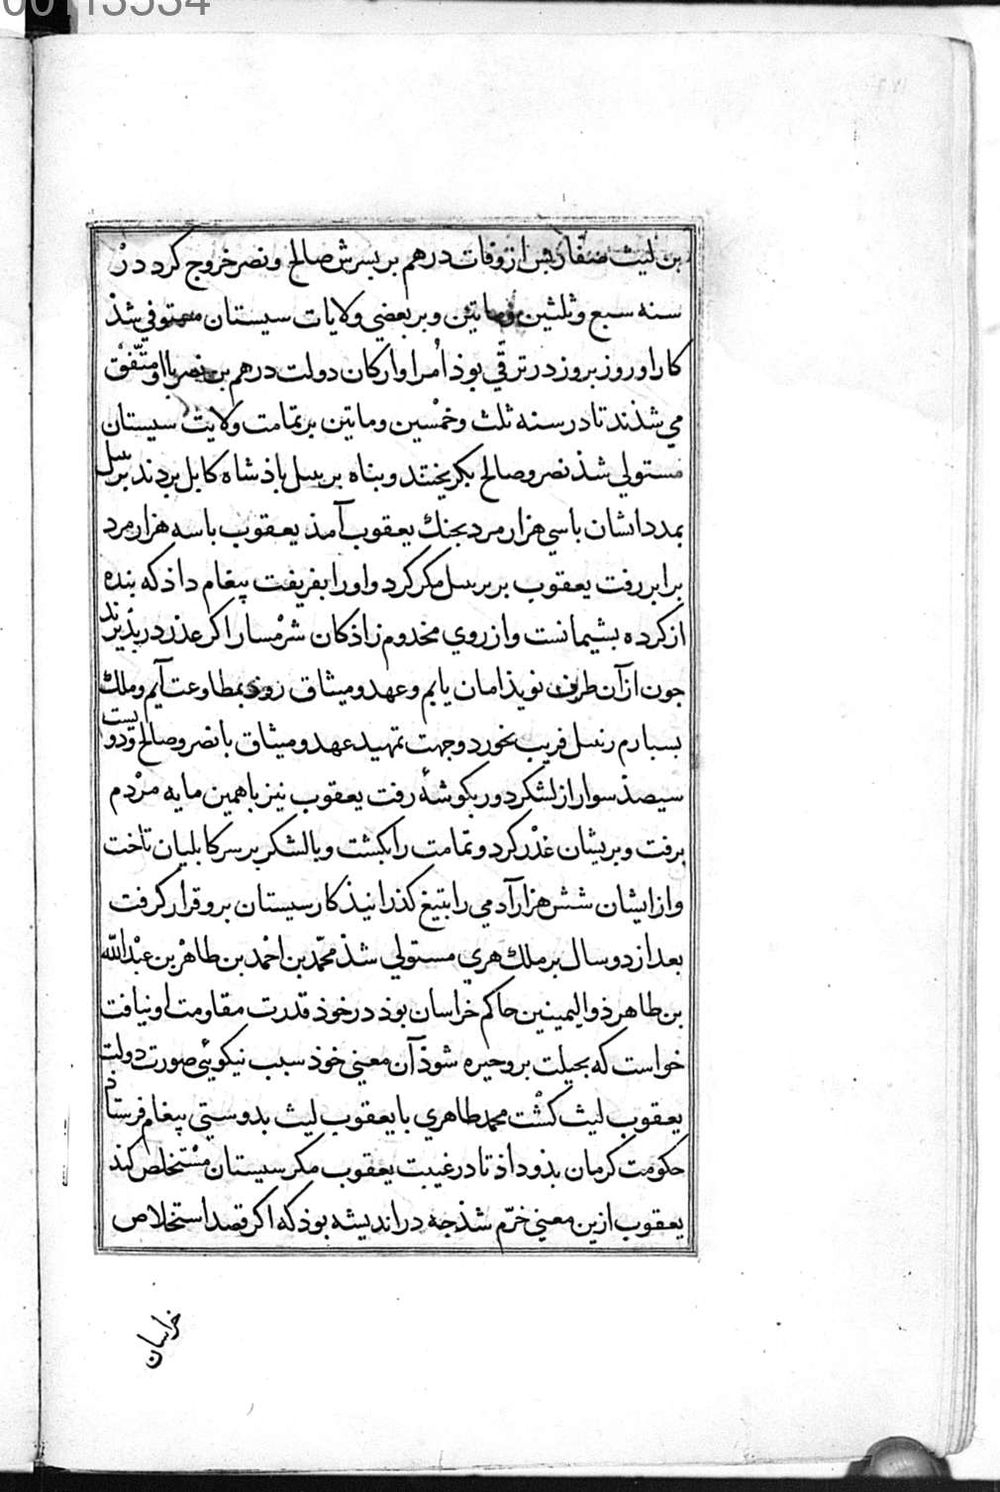 00113534
بن لیث صفّار پس از وفات درهم بر پسرش صالح و نصر خروج کرد در
سنه سبع و ثلثین و ماتین و بر بعضی ولایات سیستان مستوفی شذ
کار او روز بروز در ترقّی بوذ امرا و ارکان دولت درهم بن نصر باا و متّفق
می شذند تا در سنه ثلث و خمسین و ماتین بر تمامت ولایت سیستان
مستولی شذ نصر و صالح بکریختند و بناه بر سل باذشاه کابل بردند رسل
بمدد ایشان باسی هزار مرد بجنك یعقوب آمذ یعقوب باسه هزار مرد
برابر رفت یعقوب بر رسل مکر کرد و اورا بفریفت پیغام داذ که بنده
از کرده بشیمانست و از روی مخدوم زاذکان شرمسار اکر عذر در بذیرند
جون از آن طرف نویذ امان یابم و عهد و میثاق روذ بمطاوعت آیم و ملك
بسبارم رسل فریب بخورد و جهت تمهید عهد و میثاق با نصر و صالح و دویست
سیصذ سوار از لشکر دور بکوشهٔ رفت یعقوب نیز با همین مایه مردم
برفت و بریشان غدر کرد و تمامت را بکشت و بالشکر بر سر کابلیان تاخت
و از ایشان شش هزار آدمی را بتیغ کذرانیذ کار سیستان برو قرار کرفت
بعد از دو سال بر ملك هری مستولی شذ محمّد بن احمد بن طاهر بن عبدالله
بن طاهر ذو الیمینین حاکم خراسان بوذ در خوذ قدرت مقاومت او نیافت
خواست که بحیلت برو چیره شوذ آن معنی خوذ سبب نیکوئی صورت دولت
یعقوب لیث کشت محمد طاهری با یعقوب لیث بدوستی پیغام فرستاذ
حکومت کرمان بذو داذ تا در غیبت یعقوب مکر سیستان مستخلص کند
یعقوب ازین معنی خرّم شذ جه در اندیشه بوذ که اکر قصد استخلاص
خراسان